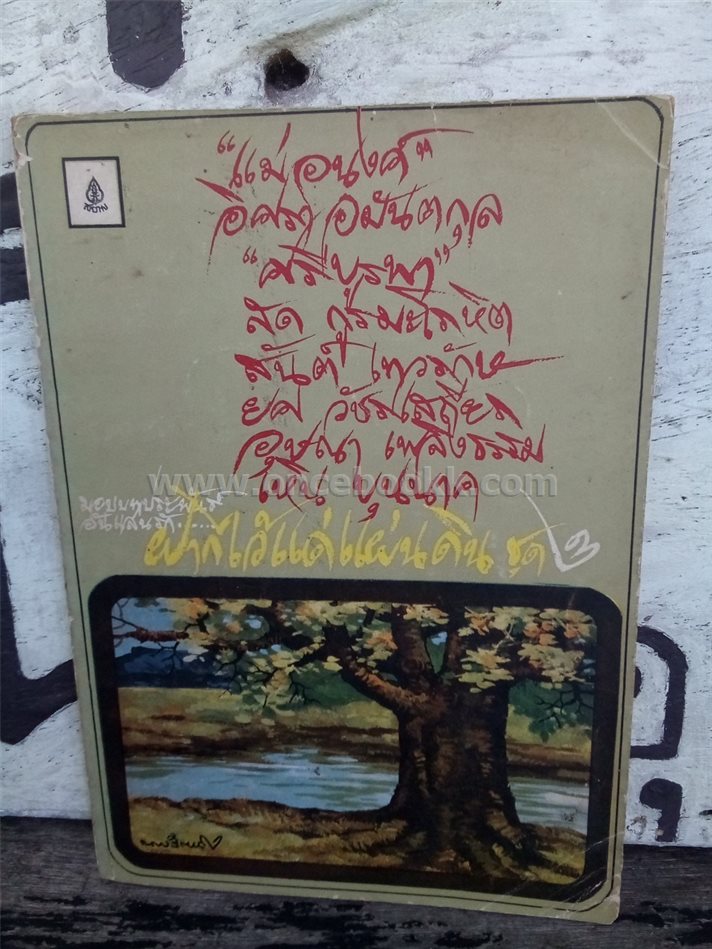 "แม่อนงค์"
อิศรา อมันตกุล
"ศรีบูรพา"
สด กูรมะโรหิต
สันต์ เทวรักษ์
ยศ วัชรเสถียร
อุษณา เพลิงธรรม
เทิน บุนนาค
www.oncebookk.com
มอบบทประพันธ์
อันแสนรัก......
ฝากไว้แด่แผ่นดิน ชุด ๒